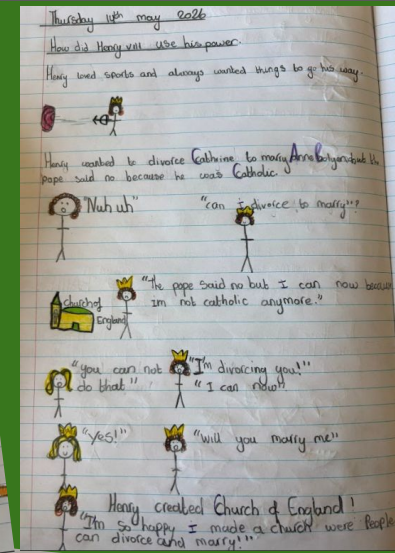 Thursday 14th may 2026
How did Henry VIII use his power.
Henry loved sports and always wanted things to go his way.
Henry wanted to divorce Cathrine to marry Anne Bolyn but the
pope said no because he was Catholic.
"Nuh uh"
"can i divorce to marry"?
"The pope said no but I can now because
Im not catholic anymore."
Church of
England
"you can not
do that"
"I'm divorcing you!"
"I can now"
"Yes!"
"Will you marry me"
Henry created Church of England!
"I'm so happy I made a church were People
can divorce and marry!"